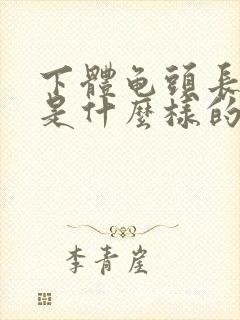 下體龟頭長
是什麼樣的
李青崖